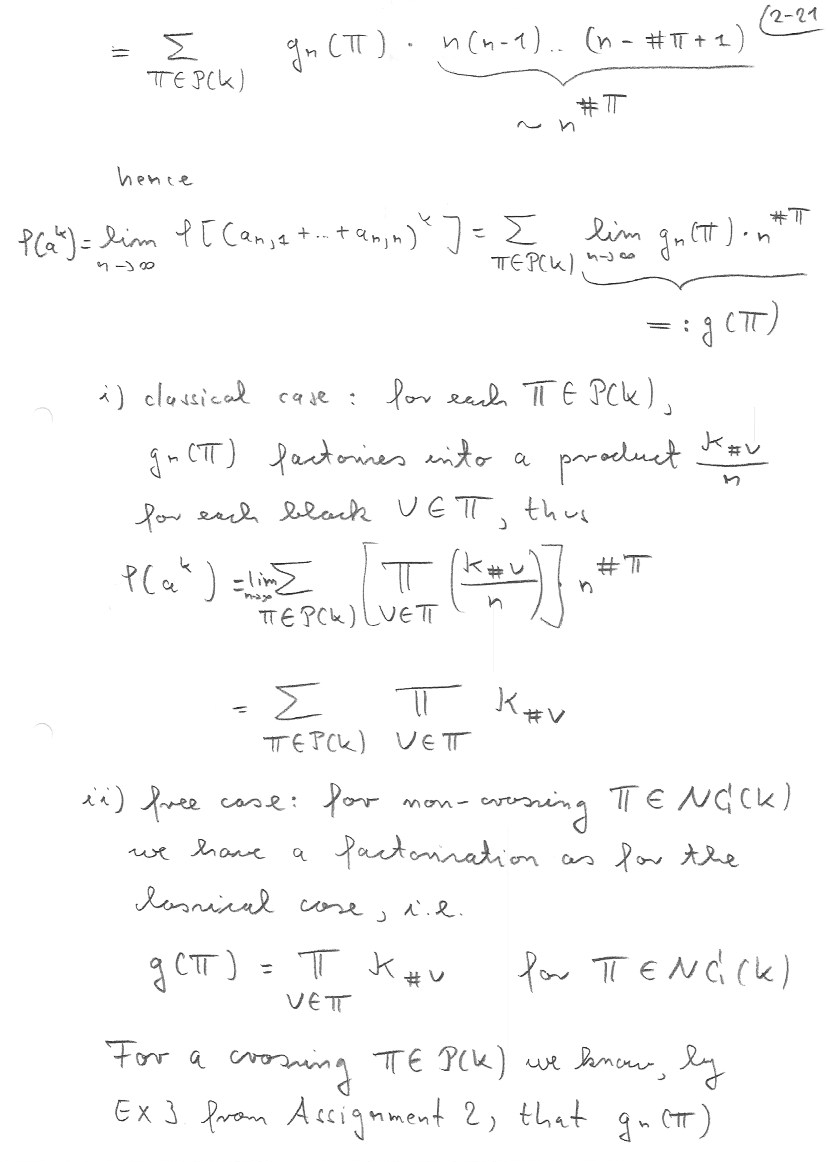 2-21
= Σ_{π∈P(k)} g_n(π) · n(n-1)..(n-#π+1)
~ n^{#π}
hence
φ(a^k) = lim_{n→∞} φ[(a_{n,1}+...+a_{n,n})^k] = Σ_{π∈P(k)} lim_{n→∞} g_n(π)·n^{#π}
=: g(π)
i) classical case: for each π∈P(k),
g_n(π) factorizes into a product K_{#V}/n
for each block V∈π, thus
φ(a^k) = lim_{n→∞} Σ_{π∈P(k)} [∏_{V∈π} (K_{#V}/n)] n^{#π}
= Σ_{π∈P(k)} ∏_{V∈π} K_{#V}
ii) free case: for non-crossing π∈NC(k)
we have a factorization as for the
classical case, i.e.
g(π) = ∏_{V∈π} K_{#V} for π∈NC(k)
For a crossing π∈P(k) we know, by
Ex 3 from Assignment 2, that g_n(π)